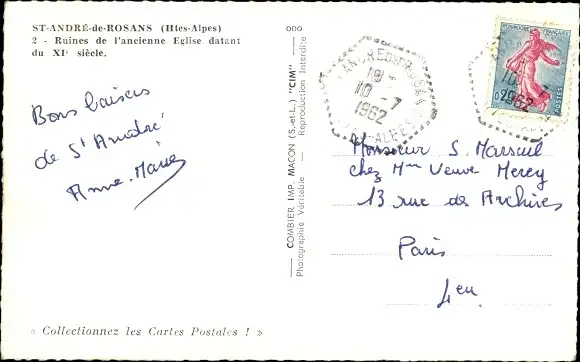 ST-ANDRÉ-de-ROSANS (Htes-Alpes)
2 - Ruines de l'ancienne Eglise datant
du XIe siècle.
Bons baisers
de St André
Anne-Marie
« Collectionnez les Cartes Postales ! »
000
COMBIER IMP. MACON (S.-et-L.) "CIM"
Photographie Véritable - Reproduction Interdite
19
10-7
1962
ALPES
POSTES
10-7
1962
Monsieur S. Marseul
chez Mme Veuve Merey
13 rue des Archives
Paris
4eu